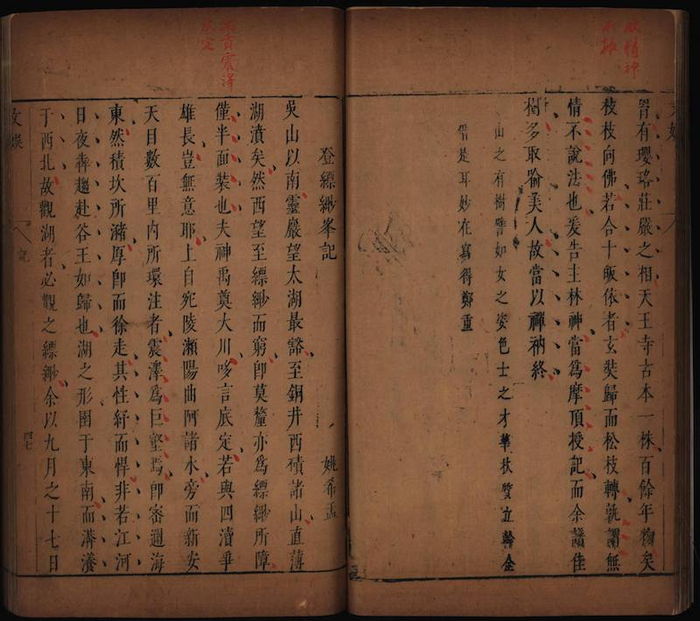 皆有瓔珞莊嚴之相天王寺古本一株百餘年物矣
枝枝向佛若合十皈依者玄奘歸而松枝轉孰謂無
情不說法也爰告土林神當爲摩頂授記而余讚佳
樹多取喻美人故當以禪衲終
山之有樹譬如女之姿色士之才華狀質立聲全
是耳妙在寫得鄭重
登縹緲峯記
姚希孟
吳山以南靈巖望太湖最豁至銅井西磧諸山直薄
湖濆矣然西望至縹緲而窮卽莫釐亦爲縹緲所障
僅半面裝也夫神禹奠大川哆言底定若與四瀆爭
雄長豈無意耶上自宛陵瀨陽曲阿諸水旁而新安
天目數百里內所環注者震澤爲巨壑焉卽密邇海
東然積坎所瀦厚卽而徐走其性紓而悍非若江河
日夜犇趨赴谷王如歸也湖之形圉于東南而漭瀁
于西北故觀湖者必觀之縹緲余以九月之十七日
文娛
記
四七